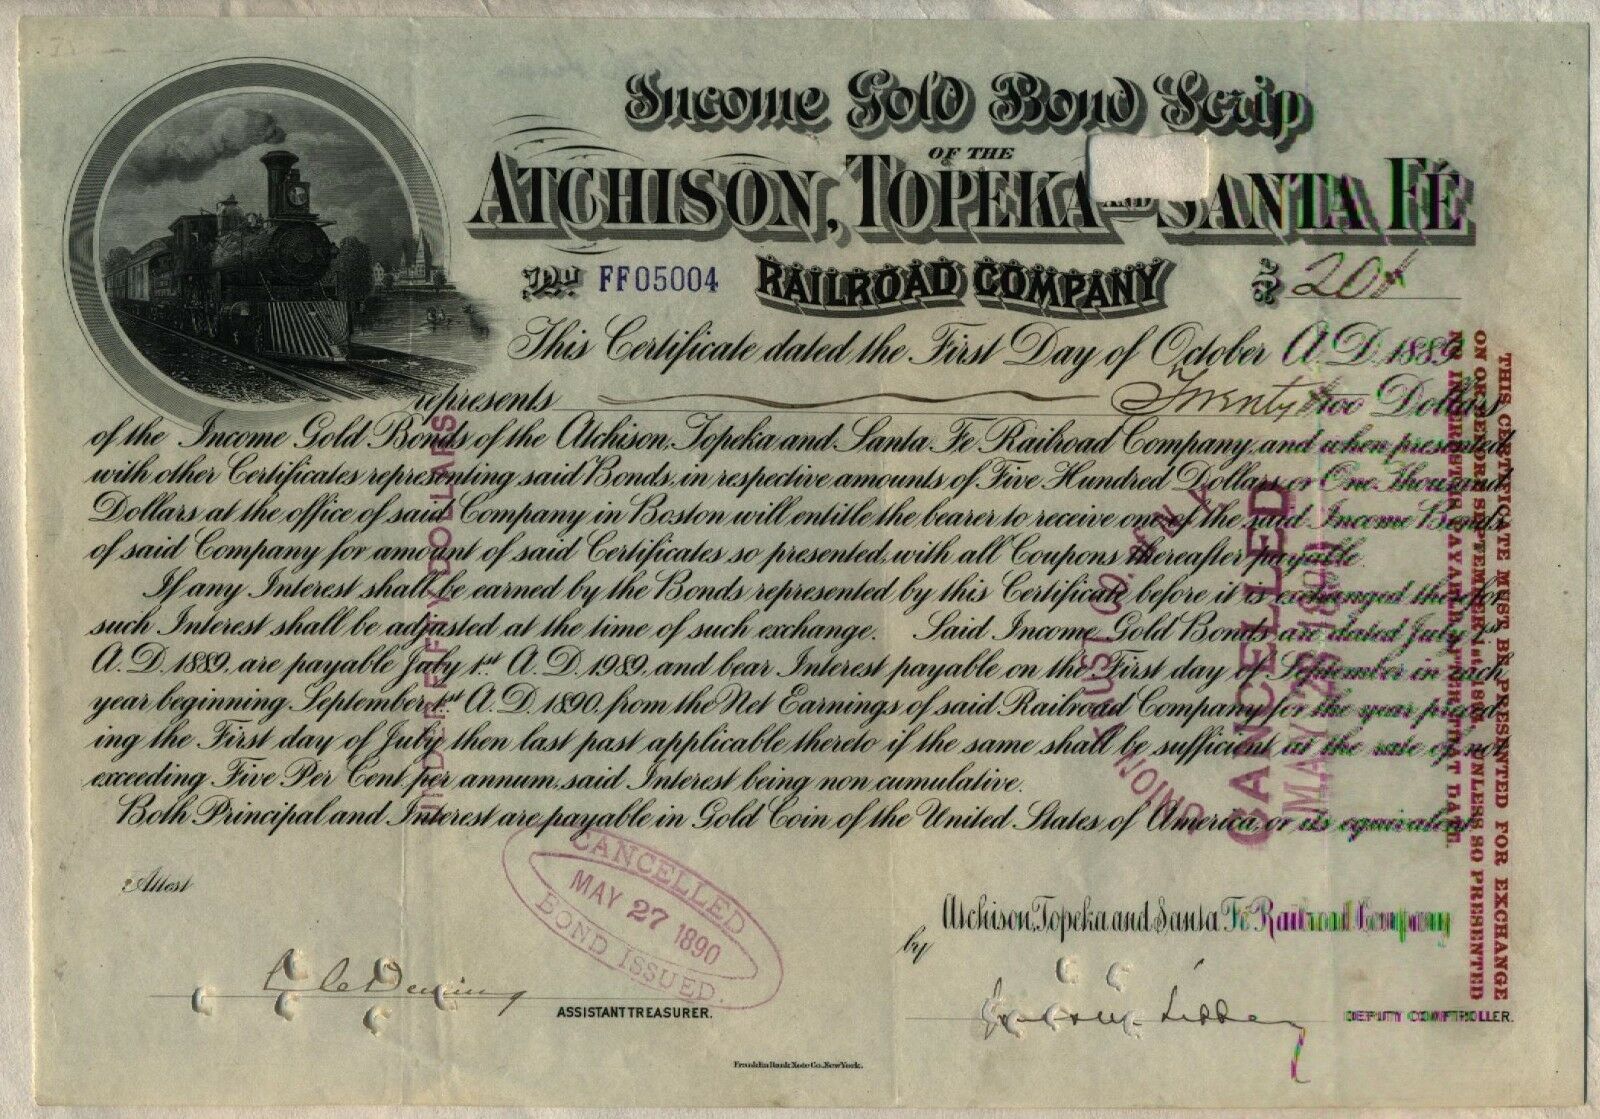 Income Gold Bond Scrip
OF THE
ATCHISON, TOPEKA AND SANTA FÉ
No. FF05004 RAILROAD COMPANY $ 20
This Certificate dated the First Day of October A.D. 1889
represents Twenty Dollars
of the Income Gold Bonds of the Atchison, Topeka and Santa Fe Railroad Company, and when presented
with other Certificates representing said Bonds, in respective amounts of Five Hundred Dollars or One Thousand
Dollars at the office of said Company in Boston will entitle the bearer to receive one of the said Income Bonds
of said Company for amount of said Certificates so presented, with all Coupons thereafter payable.
If any Interest shall be earned by the Bonds represented by this Certificate before it is exchanged therefor
such Interest shall be adjusted at the time of such exchange. Said Income Gold Bonds are dated July 1st
A.D. 1889, are payable July 1st A.D. 1989, and bear Interest payable on the First day of September in each
year beginning September 1st A.D. 1890, from the Net Earnings of said Railroad Company for the year preced-
ing the First day of July then last past applicable thereto if the same shall be sufficient at the rate of not
exceeding Five Per Cent per annum, said Interest being non cumulative.
Both Principal and Interest are payable in Gold Coin of the United States of America, or its equivalent
Attest
Atchison, Topeka and Santa Fe Railroad Company
by
ASSISTANT TREASURER.
DEPUTY COMPTROLLER.
Franklin Bank Note Co., New York.
CANCELLED
MAY 27 1890
BOND ISSUED.
UNDER FIFTY DOLLARS
UNION TRUST CO. OF N.Y.
CANCELLED
MAY 28 1890
THIS CERTIFICATE MUST BE PRESENTED FOR EXCHANGE
ON OR BEFORE SEPTEMBER 1st, 1890, UNLESS SO PRESENTED
NO INTEREST IS PAYABLE AT THAT DATE.